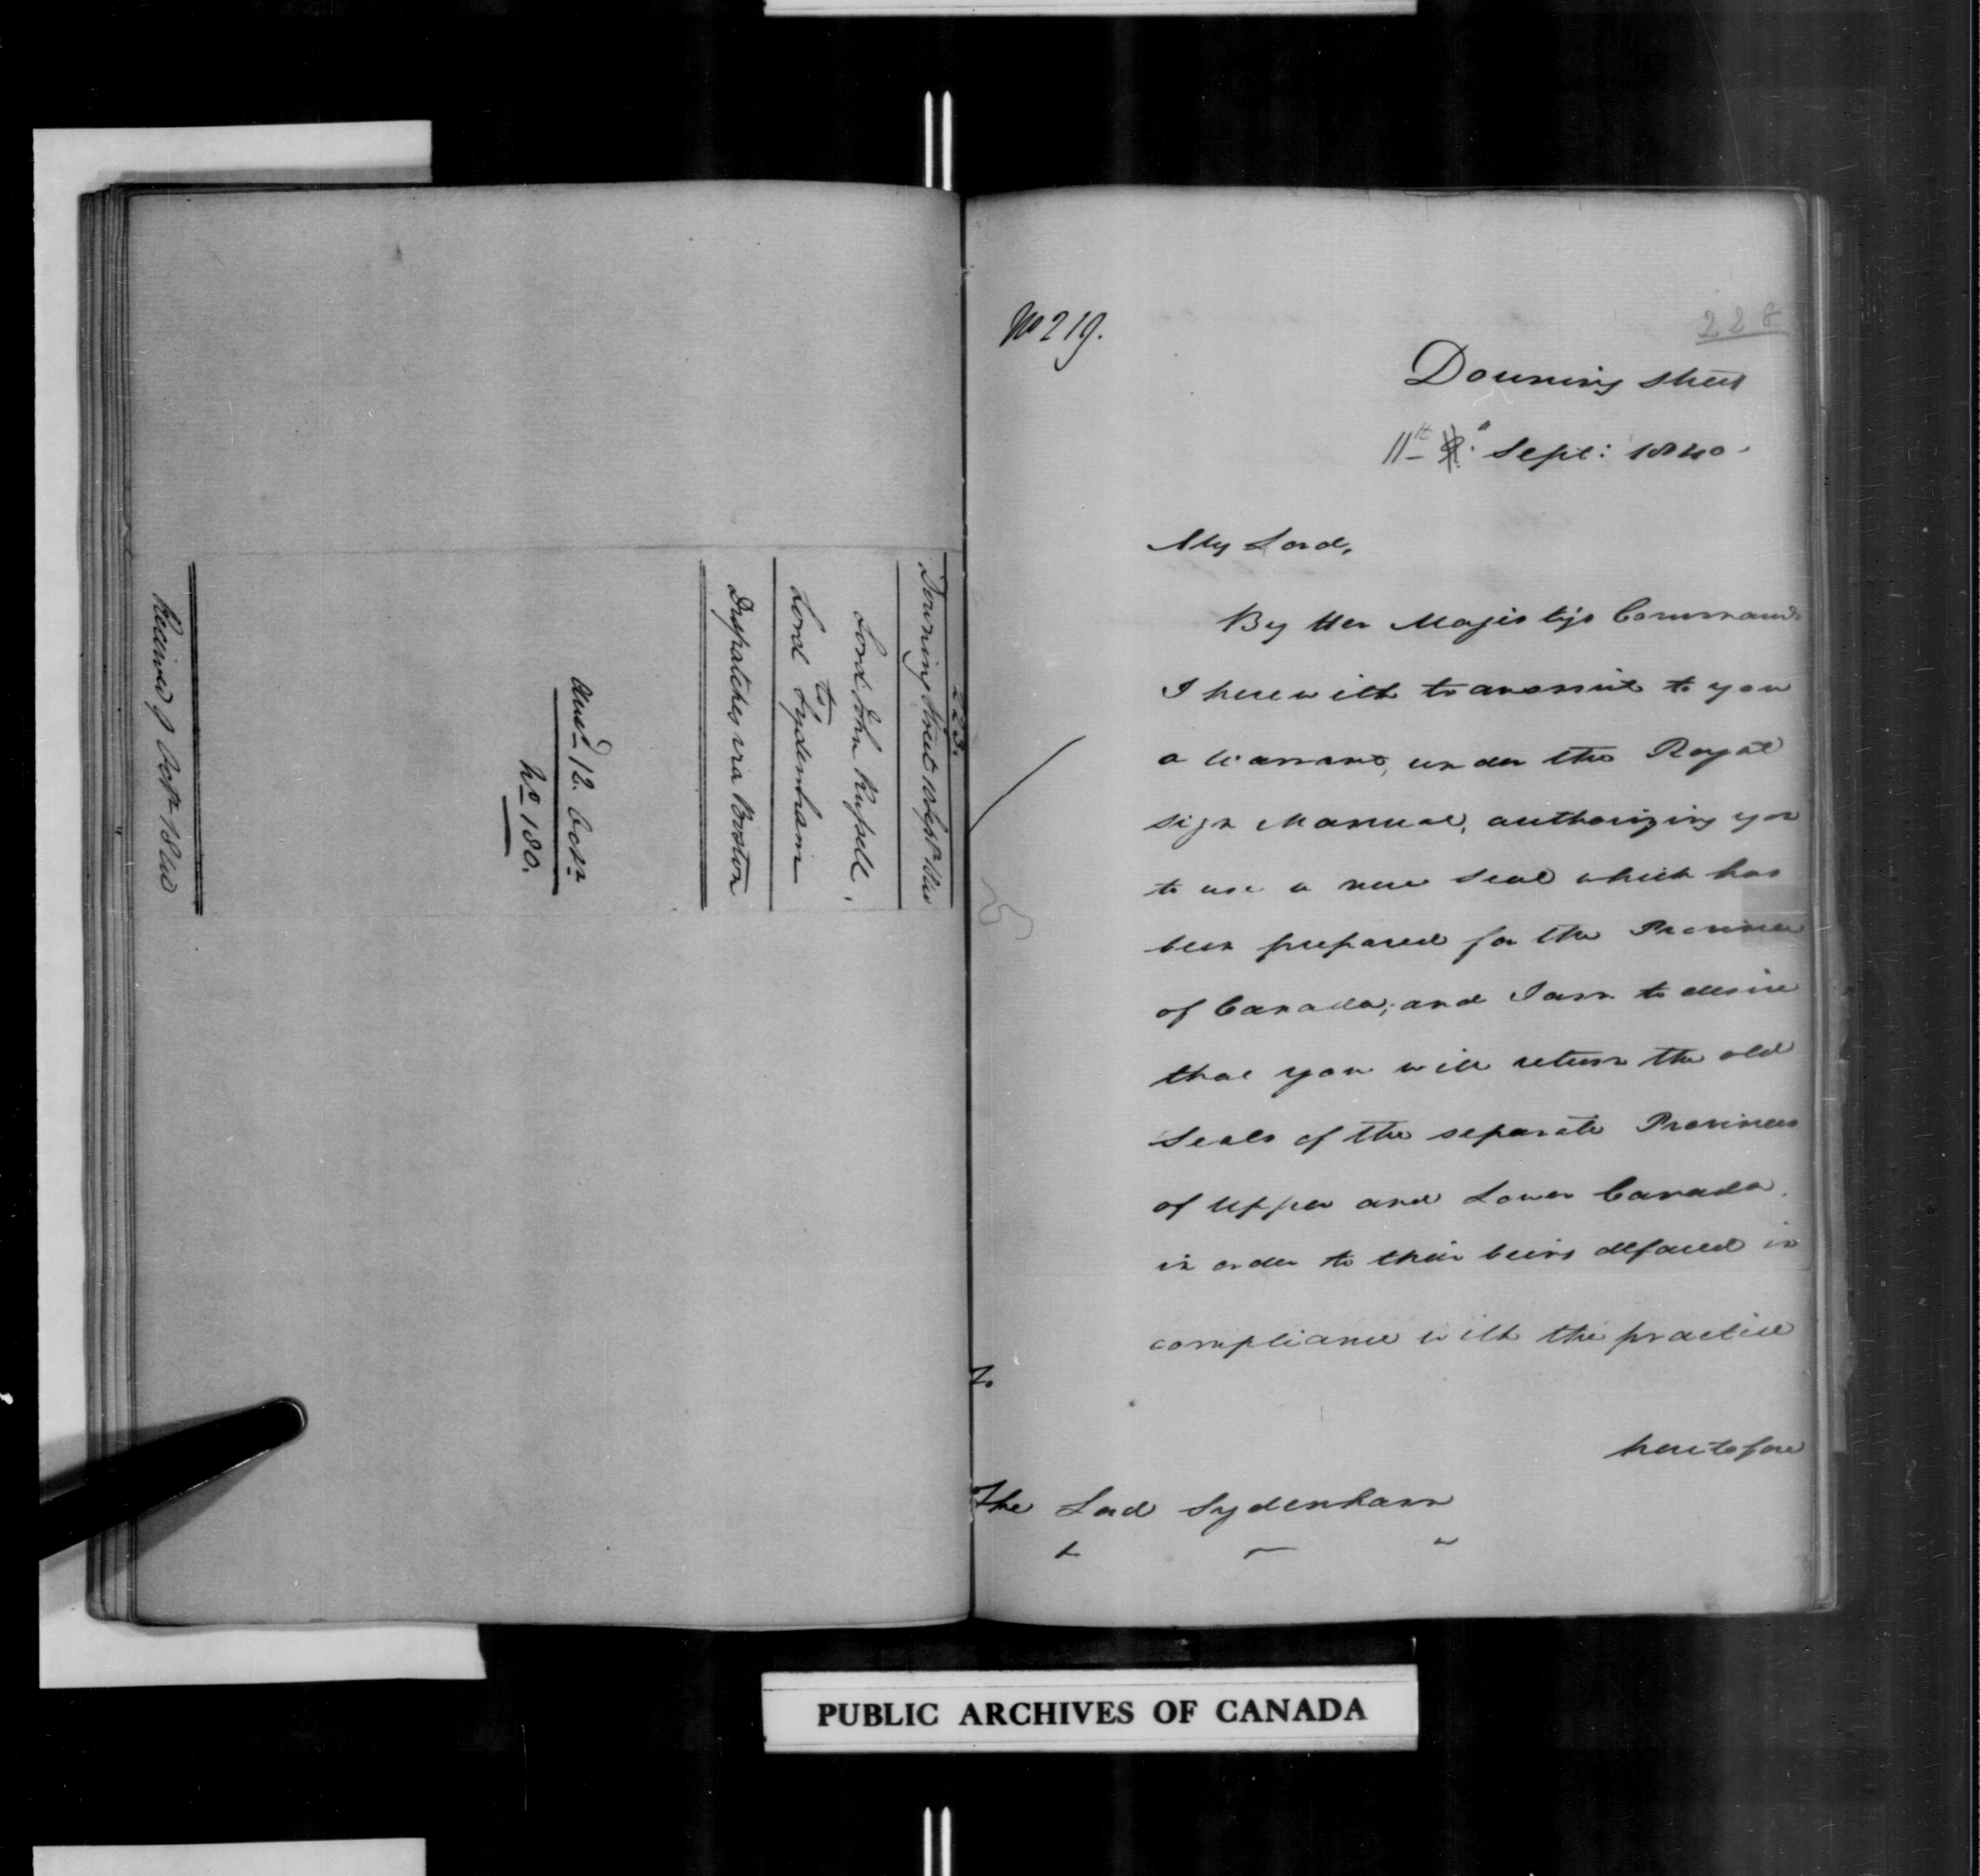 223.
Downing Street 10 Sept 1840
Lord John Russell.
to
Lord Sydenham
Dispatches via Boston
Answd 12. Octr
No 180.
Received 9 Octr 1840
No 219.
228
Downing Street
11th Sept: 1840.
My Lord,
By Her Majesty's Command
I herewith transmit to you
a Warrant, under the Royal
Sign Manual, authorizing you
to use a new Seal which has
been prepared for the Province
of Canada; and I am to desire
that you will return the old
Seals of the separate Provinces
of Upper and Lower Canada,
in order to their being defaced in
compliance with the practice
heretofore
The Lord Sydenham
PUBLIC ARCHIVES OF CANADA